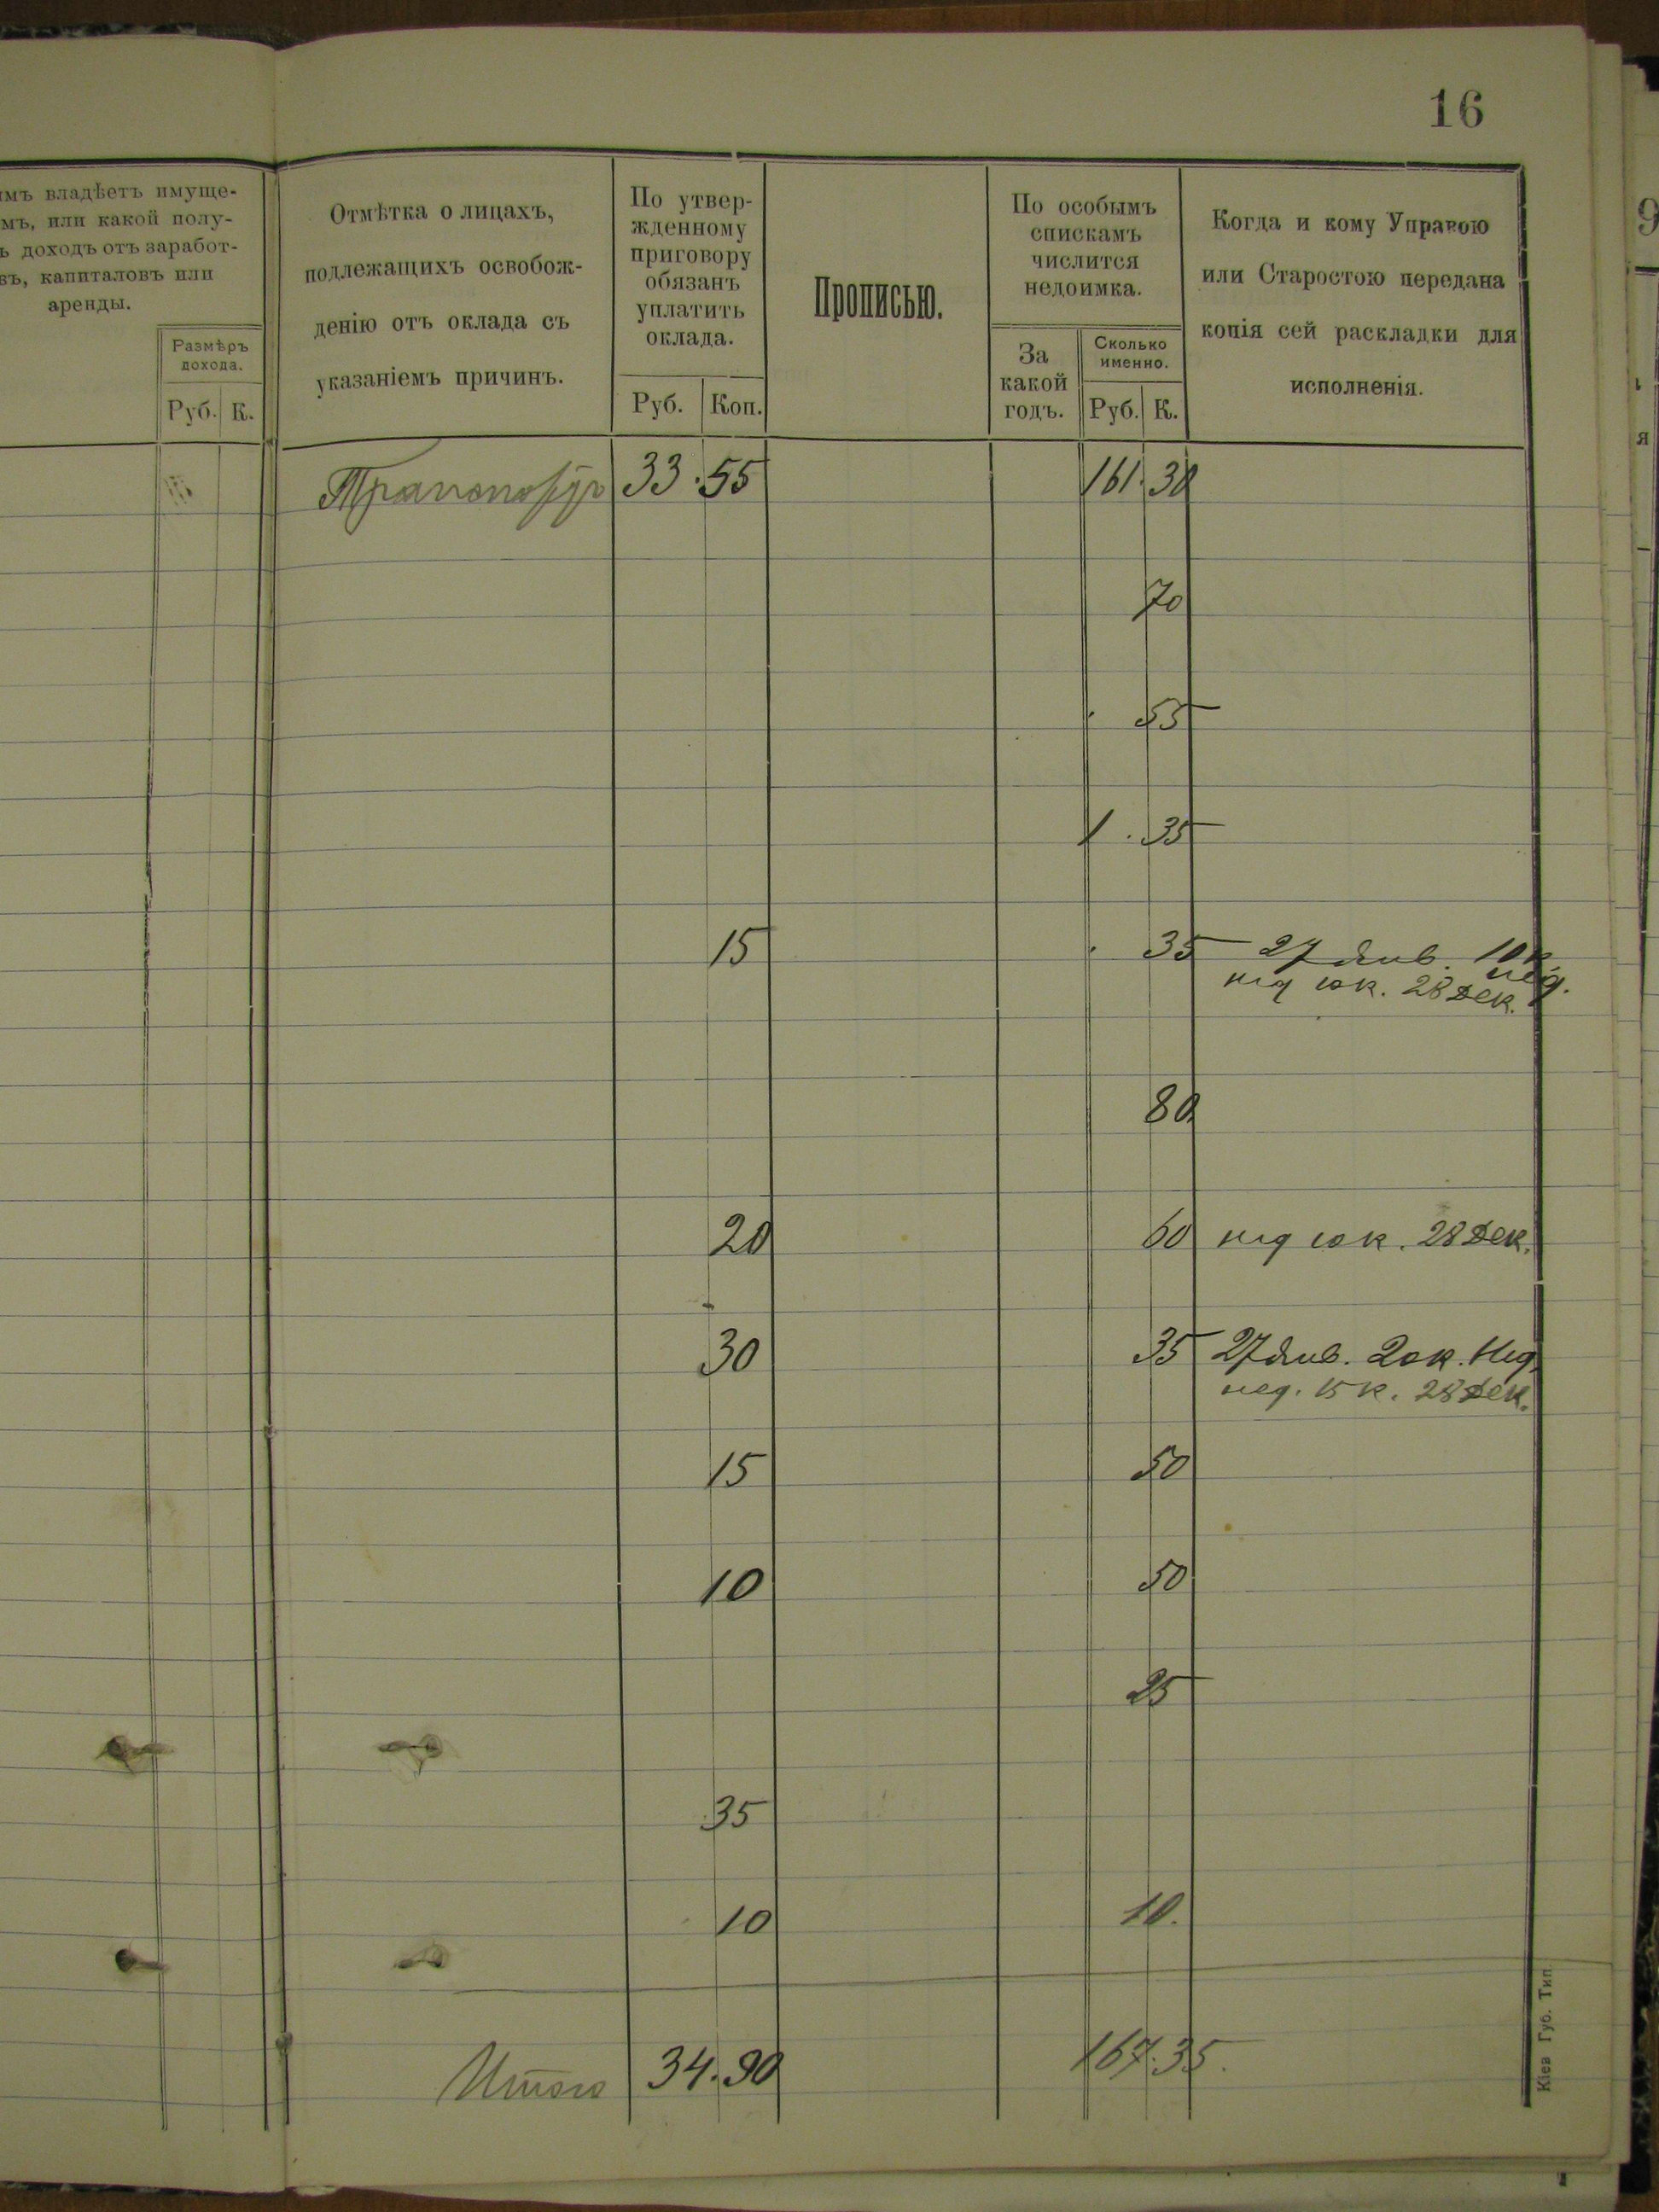 16
имъ владѣетъ имуще-
мъ, или какой полу-
ь доходъ отъ заработ-
въ, капиталовъ или
аренды.
Размѣръ
дохода.
Руб. К.
Отмѣтка о лицахъ,
подлежащихъ освобож-
денію отъ оклада съ
указаніемъ причинъ.
По утвер-
жденному
приговору
обязанъ
уплатить
оклада.
Руб. Коп.
Прописью.
По особымъ
спискамъ
числится
недоимка.
За
какой
годъ.
Сколько
именно.
Руб. К.
Когда и кому Управою
или Старостою передана
копія сей раскладки для
исполненія.
33.55 161.30
70
55
1.35
15 35 27 Янв. 10 к.
28 Дек.
80
20 60 28 Дек.
30 35 27 Янв. 20к.
нед. 15 к. 28 Дек.
15 50
10 50
25
35
10 10.
Итого 34.90 167.35.
Кіев Губ. Тип.
9
я